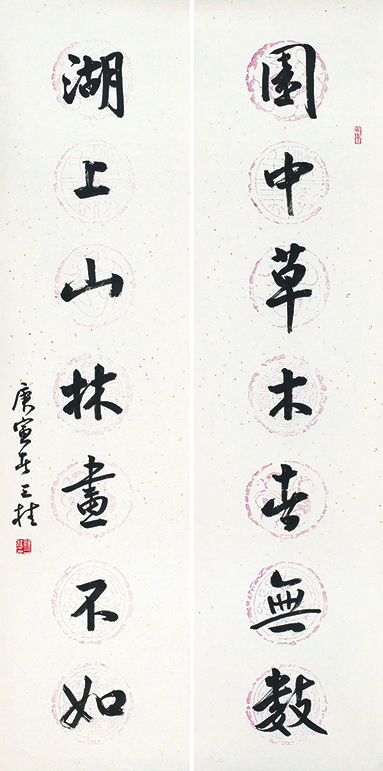 園中草木春無數
湖上山林畫不如
庚寅